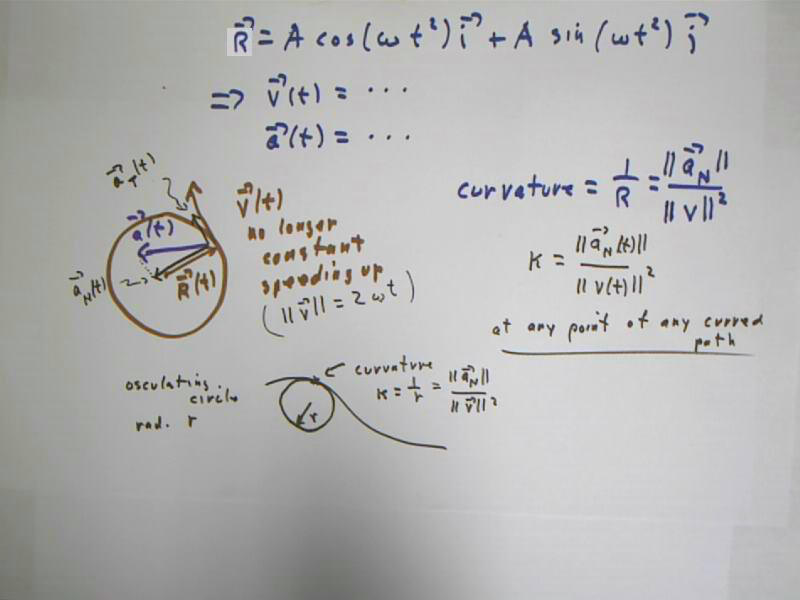 R⃗ = A cos(ω t²) i⃗ + A sin(ωt²) j⃗
⇒ v⃗(t) = ...
a⃗(t) = ...
a⃗_T(t)
a⃗(t)
a⃗_N(t)
R⃗(t)
v⃗(t)
no longer
constant
speeding up
(||v⃗|| = 2ωt)
curvature = 1/R = ||a⃗_N|| / ||v||²
K = ||a⃗_N(t)|| / ||v(t)||²
at any point of any curved
path
osculating
circle
rad. r
r
← curvature
K = 1/r = ||a⃗_N|| / ||v⃗||²